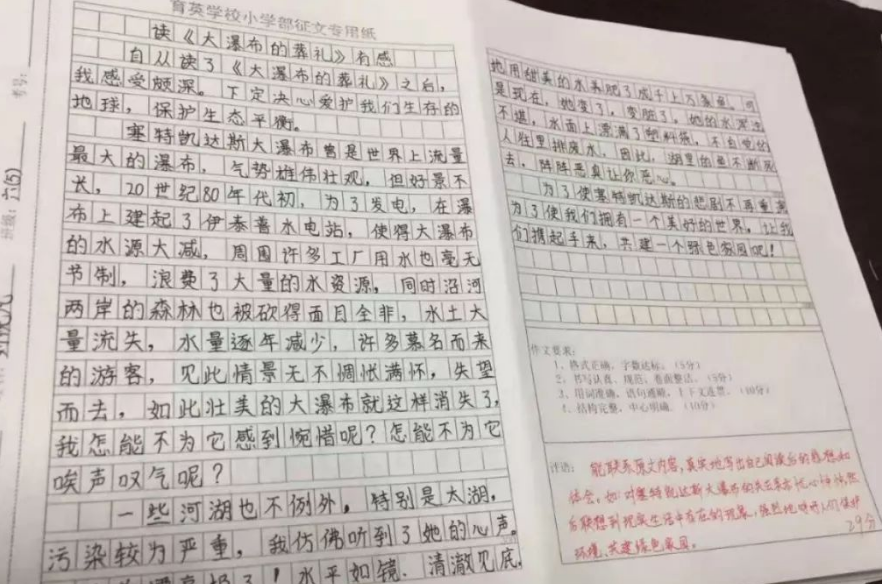 育英学校小学部征文专用纸
读《大瀑布的葬礼》有感
自从读了《大瀑布的葬礼》之后，
我感受颇深。下定决心爱护我们生存的
地球，保护生态平衡。
塞特凯达斯大瀑布曾是世界上流量
最大的瀑布，气势雄伟壮观，但好景不
长，20世纪80年代初，为了发电，在瀑
布上建起了伊泰普水电站，使得大瀑布
的水源大减，周围许多工厂用水也毫无
节制，浪费了大量的水资源，同时沿河
两岸的森林也被砍得面目全非，水土大
量流失，水量逐年减少，许多慕名而来
的游客，见此情景无不惆怅满怀，失望
而去，如此壮美的大瀑布就这样消失了，
我怎能不为它感到惋惜呢？怎能不为它
唉声叹气呢？
一些河湖也不例外。特别是太湖，
污染较为严重，我仿佛听到了她的心声。
了！水平如镜、清澈见底，
地用甜美的水养肥了成千上万条鱼。可
是现在，她变了，变脏了。她的水浑浊
不堪，水面上漂满了塑料袋，不自觉的
人往里排废水，因此，湖里的鱼不断死
去，阵阵恶臭让你恶心。
为了使塞特凯达斯的悲剧不再重演
为了使我们拥有一个美好的世界。让我
们携起手来，共建一个绿色家园吧！
作文要求：
1、格式正确，字数达标。（5分）
2、书写认真、规范，卷面整洁。（5分）
3、用词准确，语句通顺，上下文连贯。（10分）
4、结构完整，中心明确。（10分）
评语：
能联系原文内容，真实地写出自己阅读后的感想和
体会，如对塞特凯达斯大瀑布的
后联想到现实生活中存在的现象，强烈地呼吁人们保护
环境、共建绿色家园。
29分
班级：六(5)